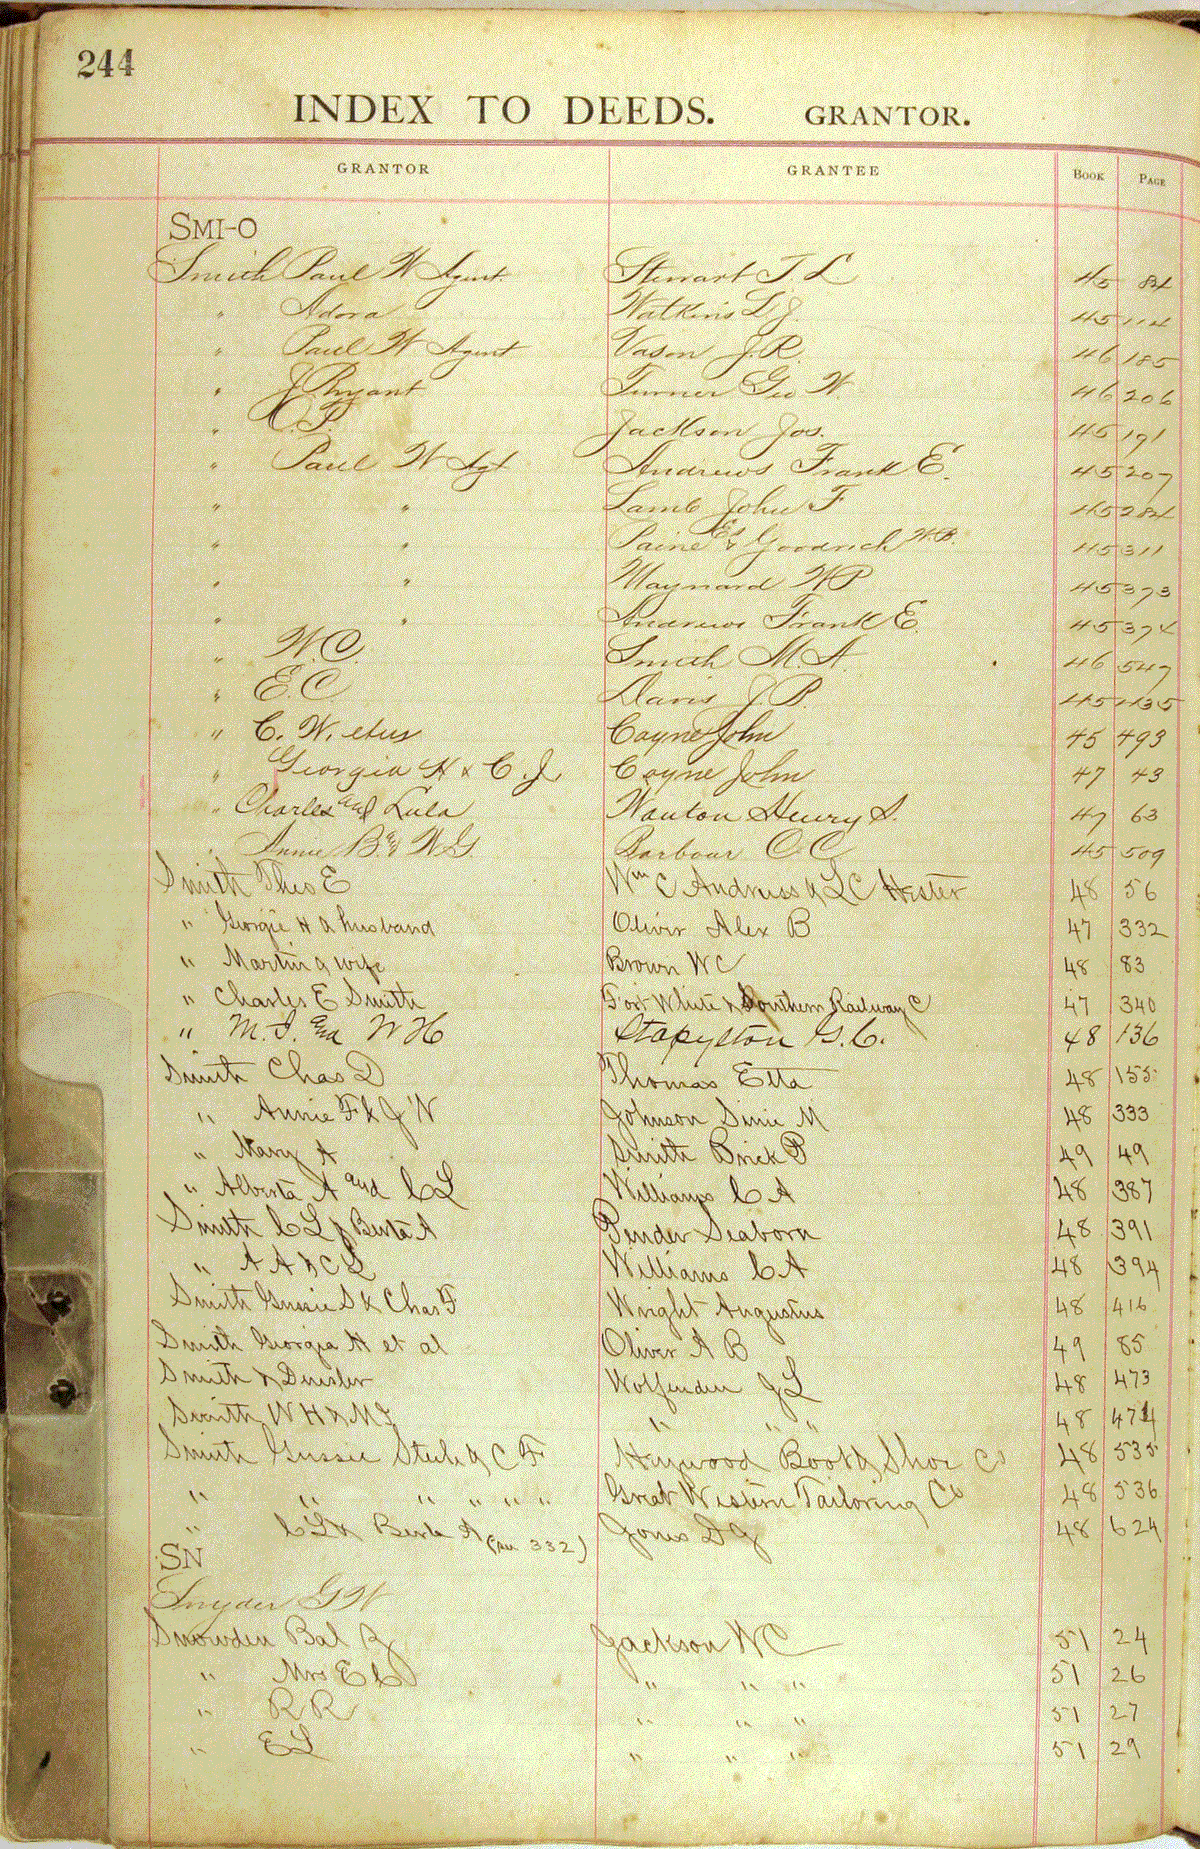 244
INDEX TO DEEDS. GRANTOR.
GRANTOR GRANTEE BOOK PAGE
SMI-O
Smith Paul W Agent Stewart T. L 45 84
" Adora Watkins L J. 45 114
" Paul W Agent Vason J. R. 46 185
" J Bryant Turner Geo W. 46 206
" Jackson Jos. 45 191
" Paul W Agt Andrews Frank E. 45 207
" " Lamb John F 45 284
" " Paine E & Goodrich 45 311
" " Maynard W P 45 373
" " Andrews Frank E. 45 374
" W. C. Smith M. A. 46 547
" E. C. Davis J. P. 45 435
" C. W. et us Coyne John 45 493
" Georgia H & C. J. Coyne John 47 43
" Charles and Lula Wanton Henry S. 47 63
" Annie B & W. G. Barbour C. C. 45 509
Smith Theo E Wm C Andruss & L C Hester 48 56
" Georgie H & husband Oliver Alex B 47 332
" Martin & wife Brown W C 48 83
" Charles E Smith Fort White & Southern Railway C 47 340
" M. J. and W H Stapylton G. C. 48 136
Smith Chas D Thomas Etta 48 155
" Annie F & J W Johnson Sinie M 48 333
" Mary A Smith Brick P 49 49
" Alberta A and C L Williams C A 48 387
Smith C L & Berta A Pender Seaborn 48 391
" A A & C L Williams C A 48 394
Smith Gussie S & Chas F Wright Augustus 48 416
Smith Georgia H et al Oliver A B 49 85
Smith & Wolfenden J L 48 473
Smith W H & M J " " " 48 474
Smith Gussie & C F Heywood Boot & Shoe Co 48 535
" " " " " " Great Western Tailoring Co 48 536
" C L & Berta A 332) Jones D J 48 624
SN
Snyder G W
Snowden Bal R Jackson W C 51 24
" Mrs E L " " " 51 26
" R R " " " 51 27
" E L " " " 51 29